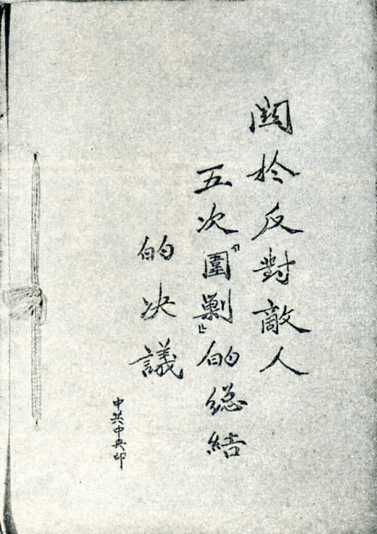 関於反對敵人
五次“圍剿”的総結
的决議
中共中央印